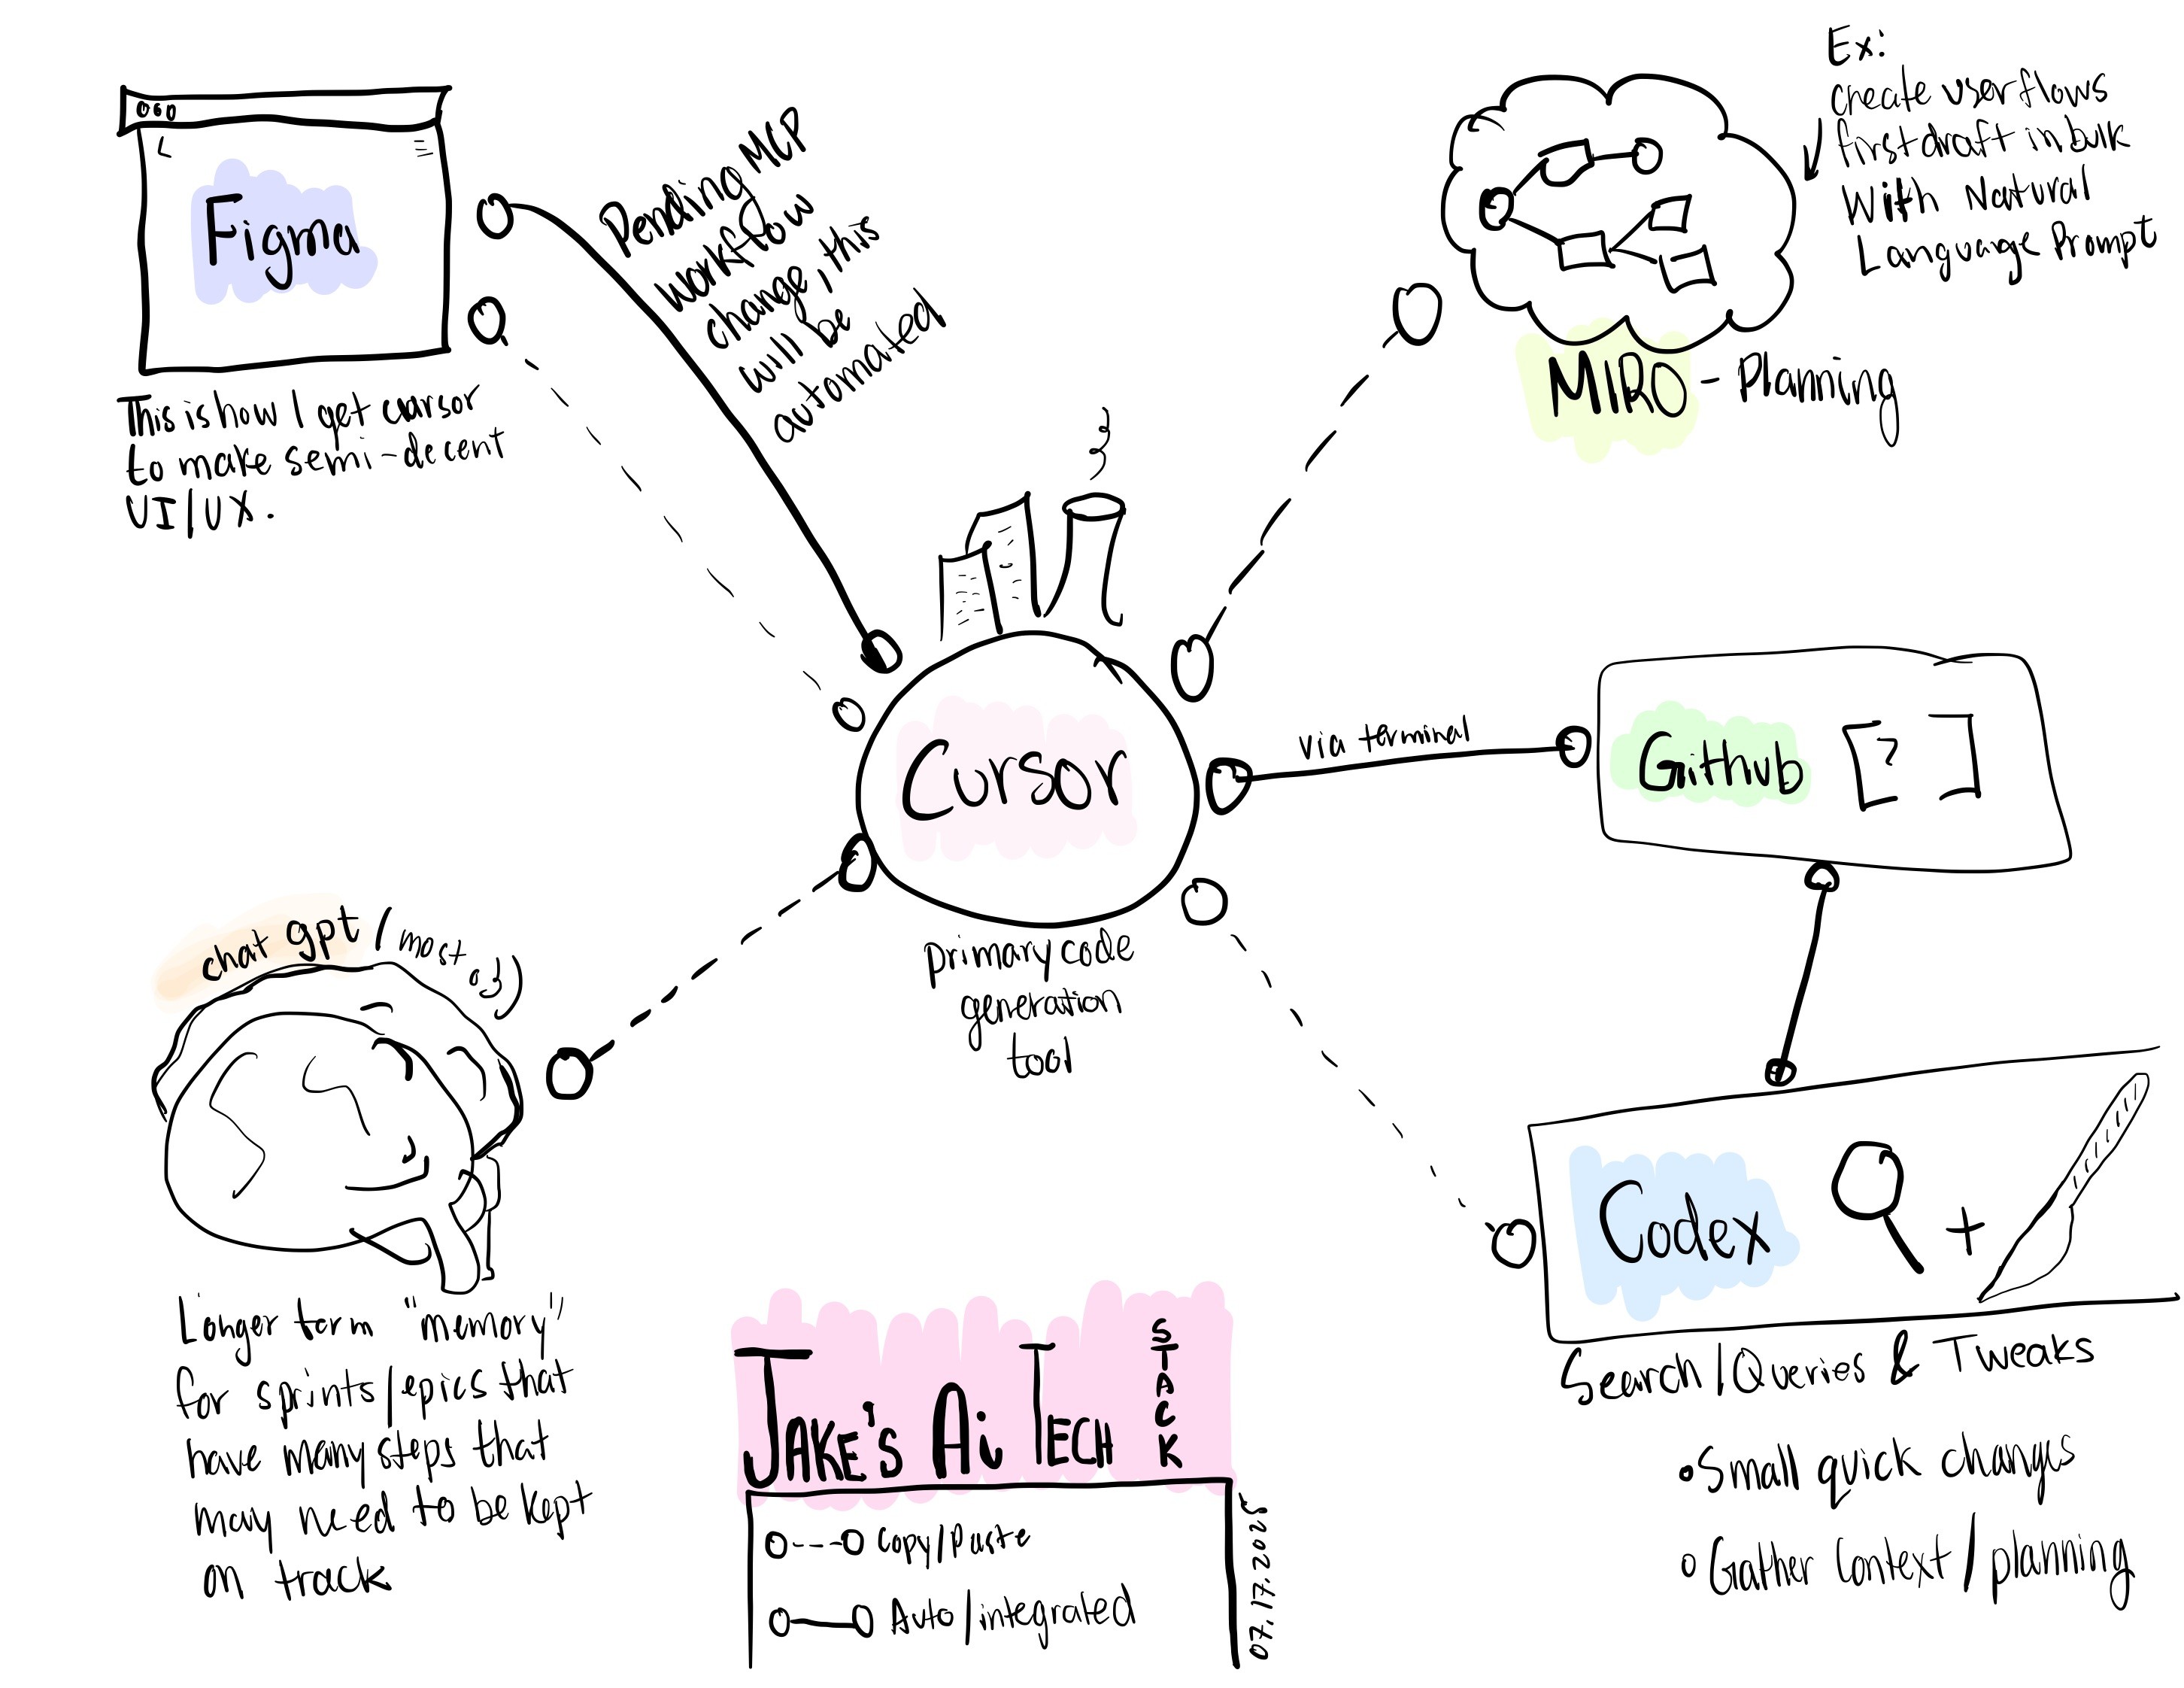 Figma
This is how I get cursor
to make semi-decent
UI/UX.
Pending MCP
workflow
change, this
will be
automated
Ex:
create userflows
first draft in bulk
With Natural
Language Prompt
MIRO - Planning
Cursor
primary code
generation
tool
via terminal
Github [ ? ]
chat gpt (most o3)
Longer term "memory"
for sprints/epics that
have many steps that
may need to be kept
on track
Codex +
Search/Queries & Tweaks
• Small quick changes
• Gather Context/planning
JAKE'S Ai TECH STACK
Copy/Paste
Auto/integrated
07.17.2025